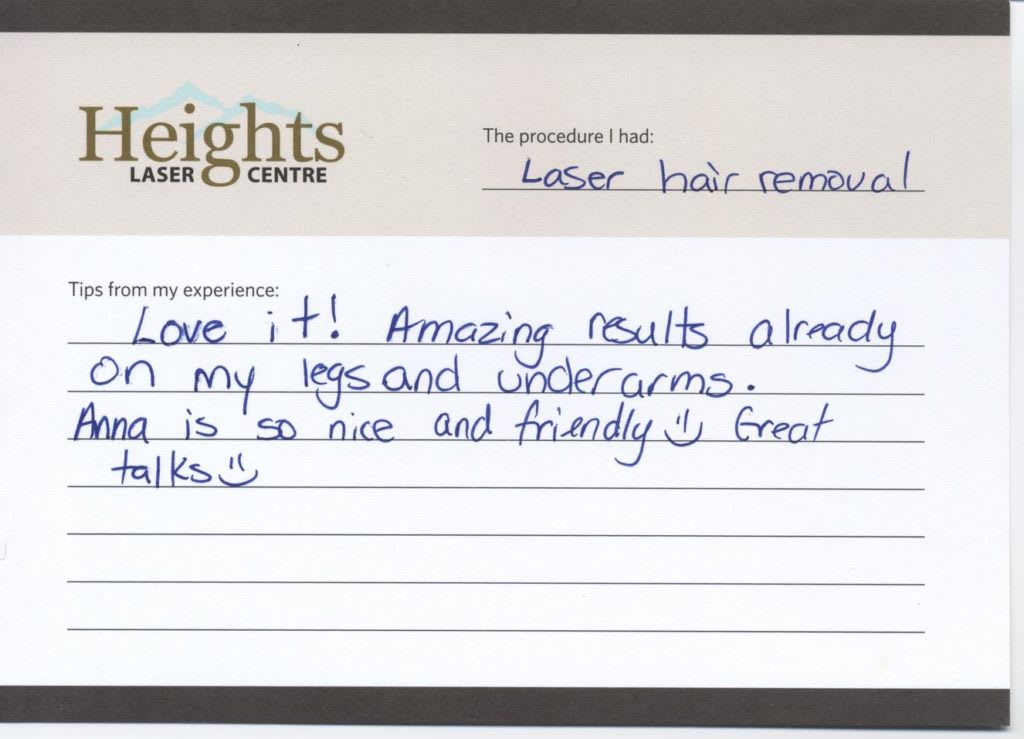 Heights
LASER CENTRE
The procedure I had:
Laser hair removal
Tips from my experience:
Love it! Amazing results already
on my legs and underarms.
Anna is so nice and friendly Great
talks